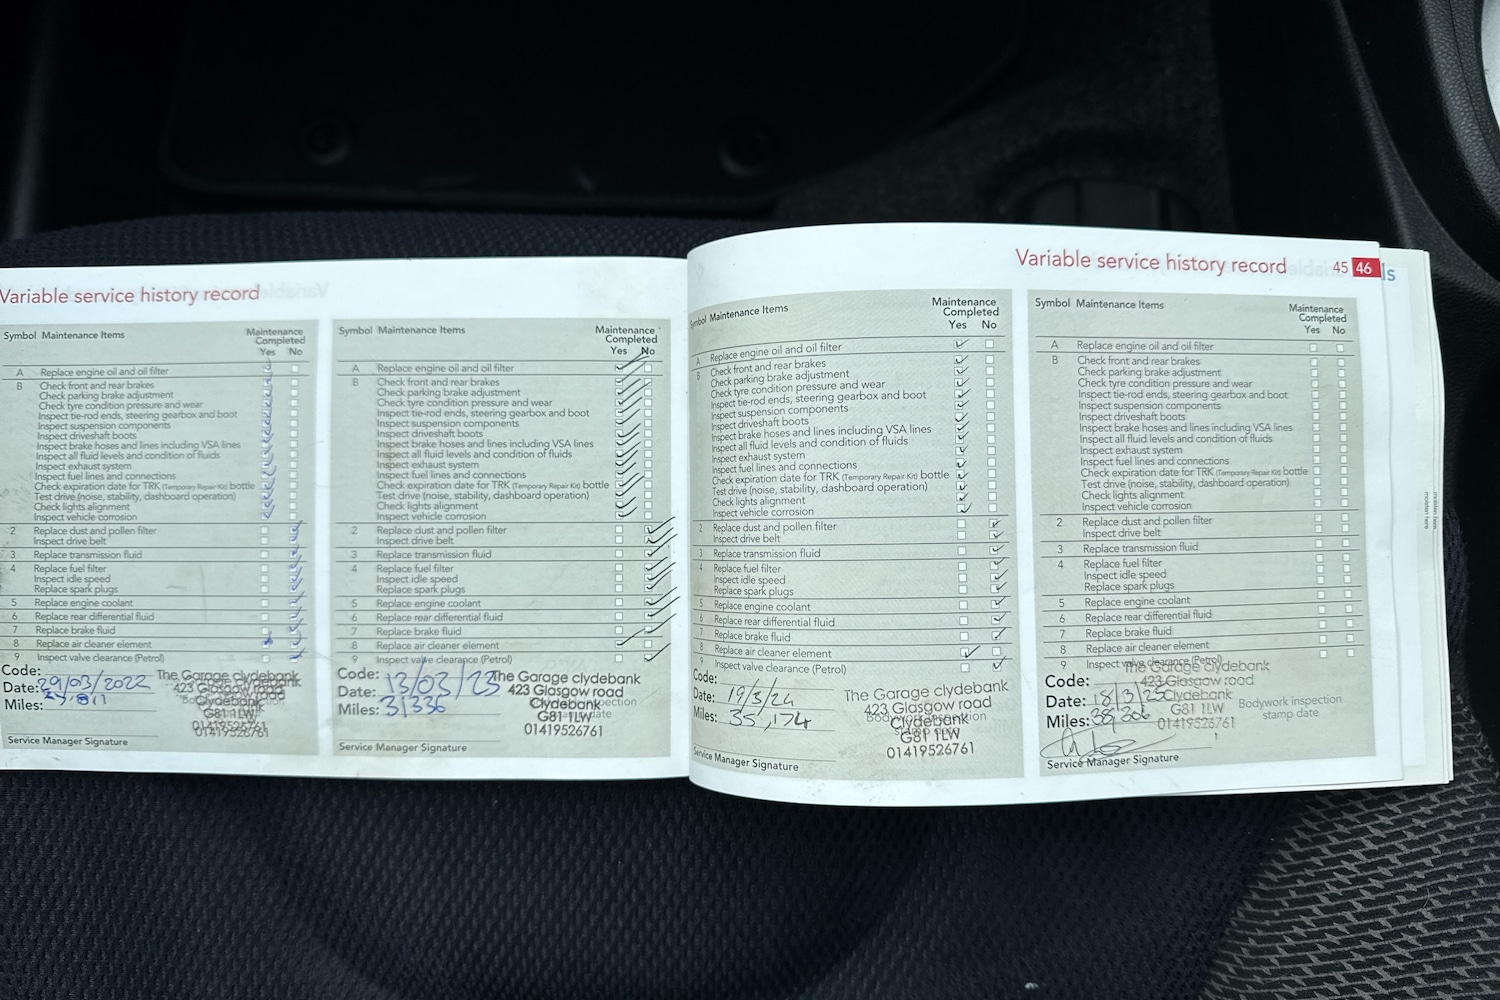 Variable service history record
Symbol Maintenance Items
Maintenance
Completed
Yes No
A Replace engine oil and oil filter
B Check front and rear brakes
Check parking brake adjustment
Check tyre condition pressure and wear
Inspect tie-rod ends, steering gearbox and boot
Inspect suspension components
Inspect driveshaft boots
Inspect brake hoses and lines including VSA lines
Inspect all fluid levels and condition of fluids
Inspect exhaust system
Inspect fuel lines and connections
Check expiration date for TRK (Temporary Repair Kit) bottle
Test drive (noise, stability, dashboard operation)
Check lights alignment
Inspect vehicle corrosion
2 Replace dust and pollen filter
Inspect drive belt
3 Replace transmission fluid
4 Replace fuel filter
Inspect idle speed
Replace spark plugs
5 Replace engine coolant
6 Replace rear differential fluid
7 Replace brake fluid
8 Replace air cleaner element
9 Inspect valve clearance (Petrol)
Code:
Date: 29/03/2022
Miles:
The Garage clydebank
423 Glasgow road
Clydebank
G81 1LW
01419526761
Service Manager Signature
Symbol Maintenance Items
Maintenance
Completed
Yes No
A Replace engine oil and oil filter
B Check front and rear brakes
Check parking brake adjustment
Check tyre condition pressure and wear
Inspect tie-rod ends, steering gearbox and boot
Inspect suspension components
Inspect driveshaft boots
Inspect brake hoses and lines including VSA lines
Inspect all fluid levels and condition of fluids
Inspect exhaust system
Inspect fuel lines and connections
Check expiration date for TRK (Temporary Repair Kit) bottle
Test drive (noise, stability, dashboard operation)
Check lights alignment
Inspect vehicle corrosion
2 Replace dust and pollen filter
Inspect drive belt
3 Replace transmission fluid
4 Replace fuel filter
Inspect idle speed
Replace spark plugs
5 Replace engine coolant
6 Replace rear differential fluid
7 Replace brake fluid
8 Replace air cleaner element
9 Inspect valve clearance (Petrol)
Code:
Date: 13/03/23
Miles: 31336
The Garage clydebank
423 Glasgow road
Clydebank
G81 1LW
01419526761
Service Manager Signature
Variable service history record 45 46
Symbol Maintenance Items
Maintenance
Completed
Yes No
A Replace engine oil and oil filter
B Check front and rear brakes
Check parking brake adjustment
Check tyre condition pressure and wear
Inspect tie-rod ends, steering gearbox and boot
Inspect suspension components
Inspect driveshaft boots
Inspect brake hoses and lines including VSA lines
Inspect all fluid levels and condition of fluids
Inspect exhaust system
Inspect fuel lines and connections
Check expiration date for TRK (Temporary Repair Kit) bottle
Test drive (noise, stability, dashboard operation)
Check lights alignment
Inspect vehicle corrosion
2 Replace dust and pollen filter
Inspect drive belt
3 Replace transmission fluid
4 Replace fuel filter
Inspect idle speed
Replace spark plugs
5 Replace engine coolant
6 Replace rear differential fluid
7 Replace brake fluid
8 Replace air cleaner element
9 Inspect valve clearance (Petrol)
Code:
Date: 19/3/24
Miles: 35,174
The Garage clydebank
423 Glasgow road
Bodywork inspection
Clydebank
G81 1LW
01419526761
Service Manager Signature
Symbol Maintenance Items
Maintenance
Completed
Yes No
A Replace engine oil and oil filter
B Check front and rear brakes
Check parking brake adjustment
Check tyre condition pressure and wear
Inspect tie-rod ends, steering gearbox and boot
Inspect suspension components
Inspect driveshaft boots
Inspect brake hoses and lines including VSA lines
Inspect all fluid levels and condition of fluids
Inspect exhaust system
Inspect fuel lines and connections
Check expiration date for TRK (Temporary Repair Kit) bottle
Test drive (noise, stability, dashboard operation)
Check lights alignment
Inspect vehicle corrosion
2 Replace dust and pollen filter
Inspect drive belt
3 Replace transmission fluid
4 Replace fuel filter
Inspect idle speed
Replace spark plugs
5 Replace engine coolant
6 Replace rear differential fluid
7 Replace brake fluid
8 Replace air cleaner element
9 Inspect valve clearance (Petrol)
The Garage clydebank
Code:
423 Glasgow road
Date: 18/3/25
Clydebank
Miles: 38,306
G81 1LW
01419526761
Bodywork inspection
stamp date
Service Manager Signature
ls